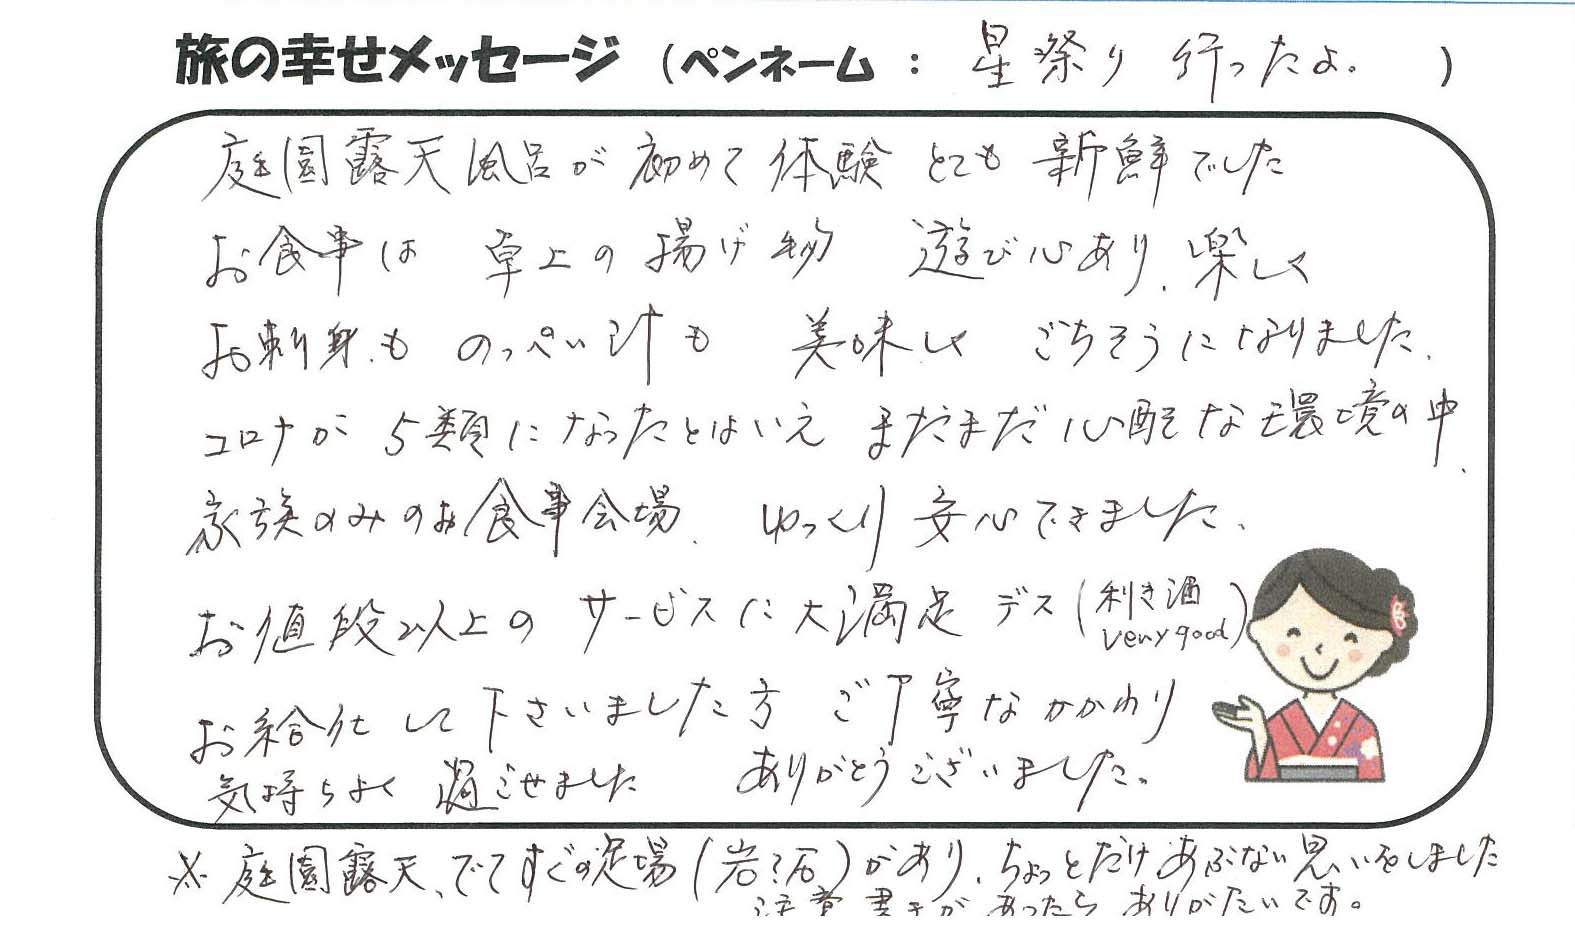 旅の幸せメッセージ（ペンネーム： 星祭り 行ったよ。 ）
庭園露天風呂が 初めて 体験 とても 新鮮でした
お食事は 卓上の 揚げ物 遊び心あり、楽しく
お刺身も のっぺい汁も 美味しく ごちそうになりました、
コロナが 5類に なったとはいえ まだまだ 心配な 環境の中、
家族のみのお食事会場、ゆっくり 安心できました、
お値段以上の サービスに 大満足 デス（利き酒 very good）
お給仕 して 下さいました方 ご丁寧な かかわり
気持ちよく 過ごせました ありがとうございました。
※ 庭園露天、でてすぐの足場（岩?石）があり、ちょっとだけ あぶない思いをしました
注意書きが あったら ありがたいです。